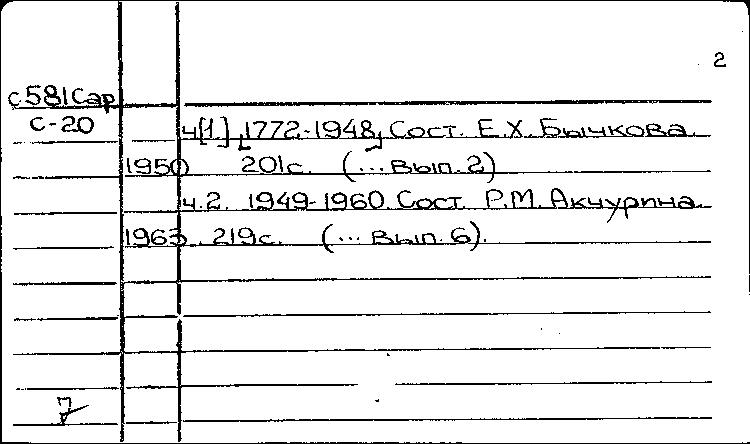 2
с581Сар
С-20
ч[1.] [1772-1948] Сост. Е.Х. Бычкова.
1950 201с. (...Вып. 2)
ч.2. 1949-1960. Сост. Р.М. Акчурина.
1963. 219с. (... Вып. 6).
7